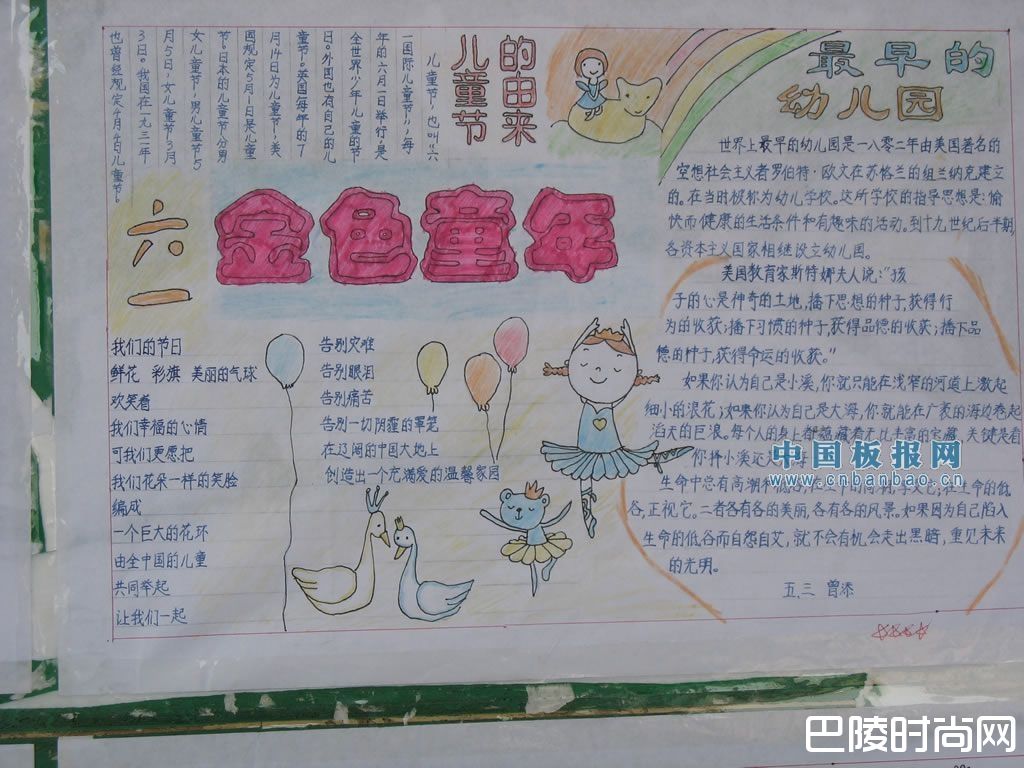 儿童节
的由来
儿童节，也叫“六
一国际儿童节”，每
年的六月一日举行，是
全世界少年儿童的节
日。外国也有自己的儿
童节。英国每年的7
月14日为儿童节，美
国规定5月1日是儿童
节。日本的儿童节分男
女儿童节，男儿童节5
月5日，女儿童节3月
3日。我国在一九三一年
也曾经规定4月4日儿童节。
最早的
幼儿园
世界上最早的幼儿园是一八零二年由美国著名的
空想社会主义者罗伯特·欧文在苏格兰的纽兰纳克建立
的。在当时极称为幼儿学校。这所学校的指导思想是：愉
快而健康的生活条件和有趣味的活动。到十九世纪后半期
各资本主义国家相继设立幼儿园。
六一
金色童年
美国教育家斯特娜夫人说：“孩
子的心是神奇的土地，播下思想的种子，获得行
为的收获；播下习惯的种子，获得品德的收获；播下品
德的种子，获得命运的收获。”
如果你认为自己是小溪，你就只能在浅窄的河道上激起
细小的浪花；如果你认为自己是大海，你就能在广袤的海边卷起
滔天的巨浪。每个人的身上都蕴藏着无比丰富的宝藏，关键是看
你择小溪还大海
生命中总有高潮和低谷，在生命的高潮，享受它；在生命的低
谷，正视它。二者各有各的美丽，各有各的风景。如果因为自己陷入
生命的低谷而自怨自艾，就不会有机会走出黑暗，重见未来
的光明。
五.三 曾添
我们的节日
鲜花 彩旗 美丽的气球
欢笑着
我们幸福的心情
可我们更愿把
我们花朵一样的笑脸
编成
一个巨大的花环
由全中国的儿童
共同举起
让我们一起
告别灾难
告别眼泪
告别痛苦
告别一切阴霾的罩笼
在辽阔的中国大地上
创造出一个充满爱的温馨家园
中国板报网
www.cnbanbao.cn
巴陵时尚网